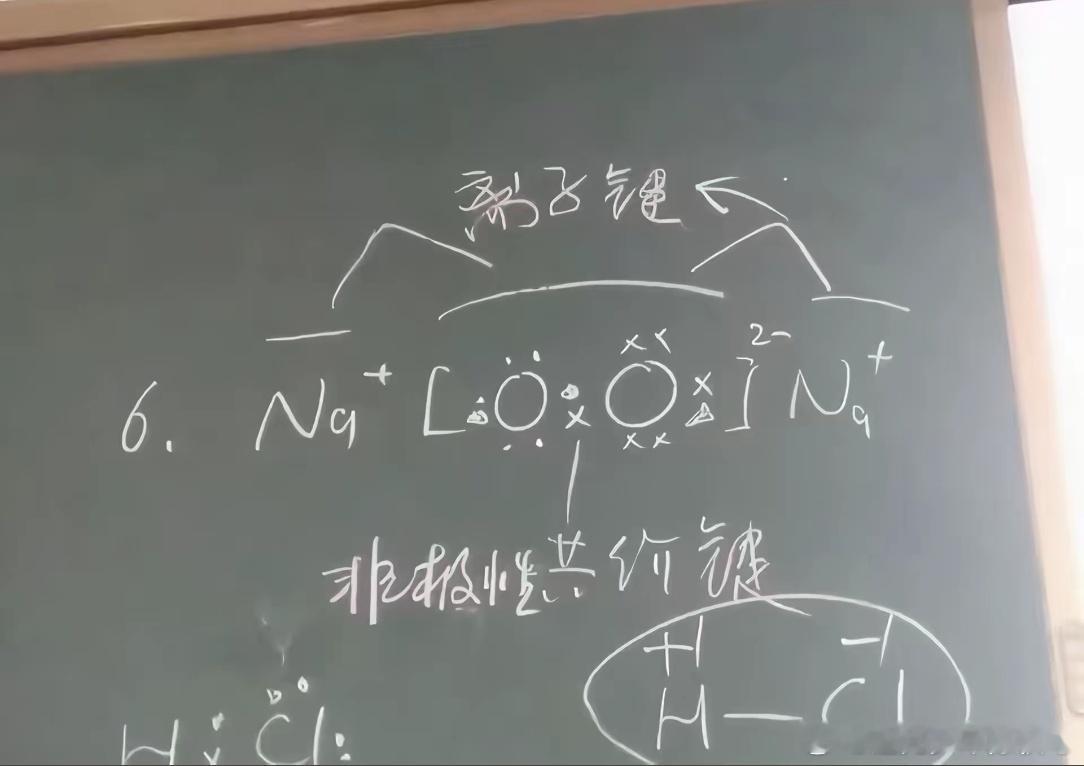 离子键
6. Na⁺ [:Ö:Ö:]²⁻ Na⁺
非极性共价键
+1 -1
H:Cl: H—Cl